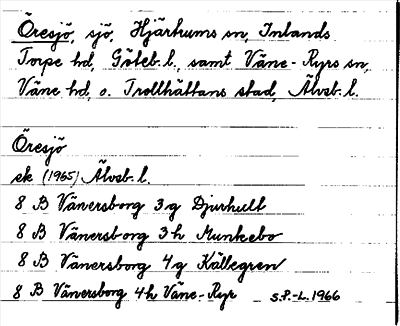 Öresjö, sjö, Hjärtums sn, Inlands
Torpe hd, Göteb. l., samt Väne-Ryrs sn,
Väne hd, o. Trollhättans stad, Älvsb. l.
Öresjö
ek (1965) Älvsb. l.
8 B Vänersborg 3 g Djurhult
8 B Vänersborg 3 h Munkebo
8 B Vänersborg 4 g Källegren
8 B Vänersborg 4 h Väne-Ryr S.P.-L. 1966